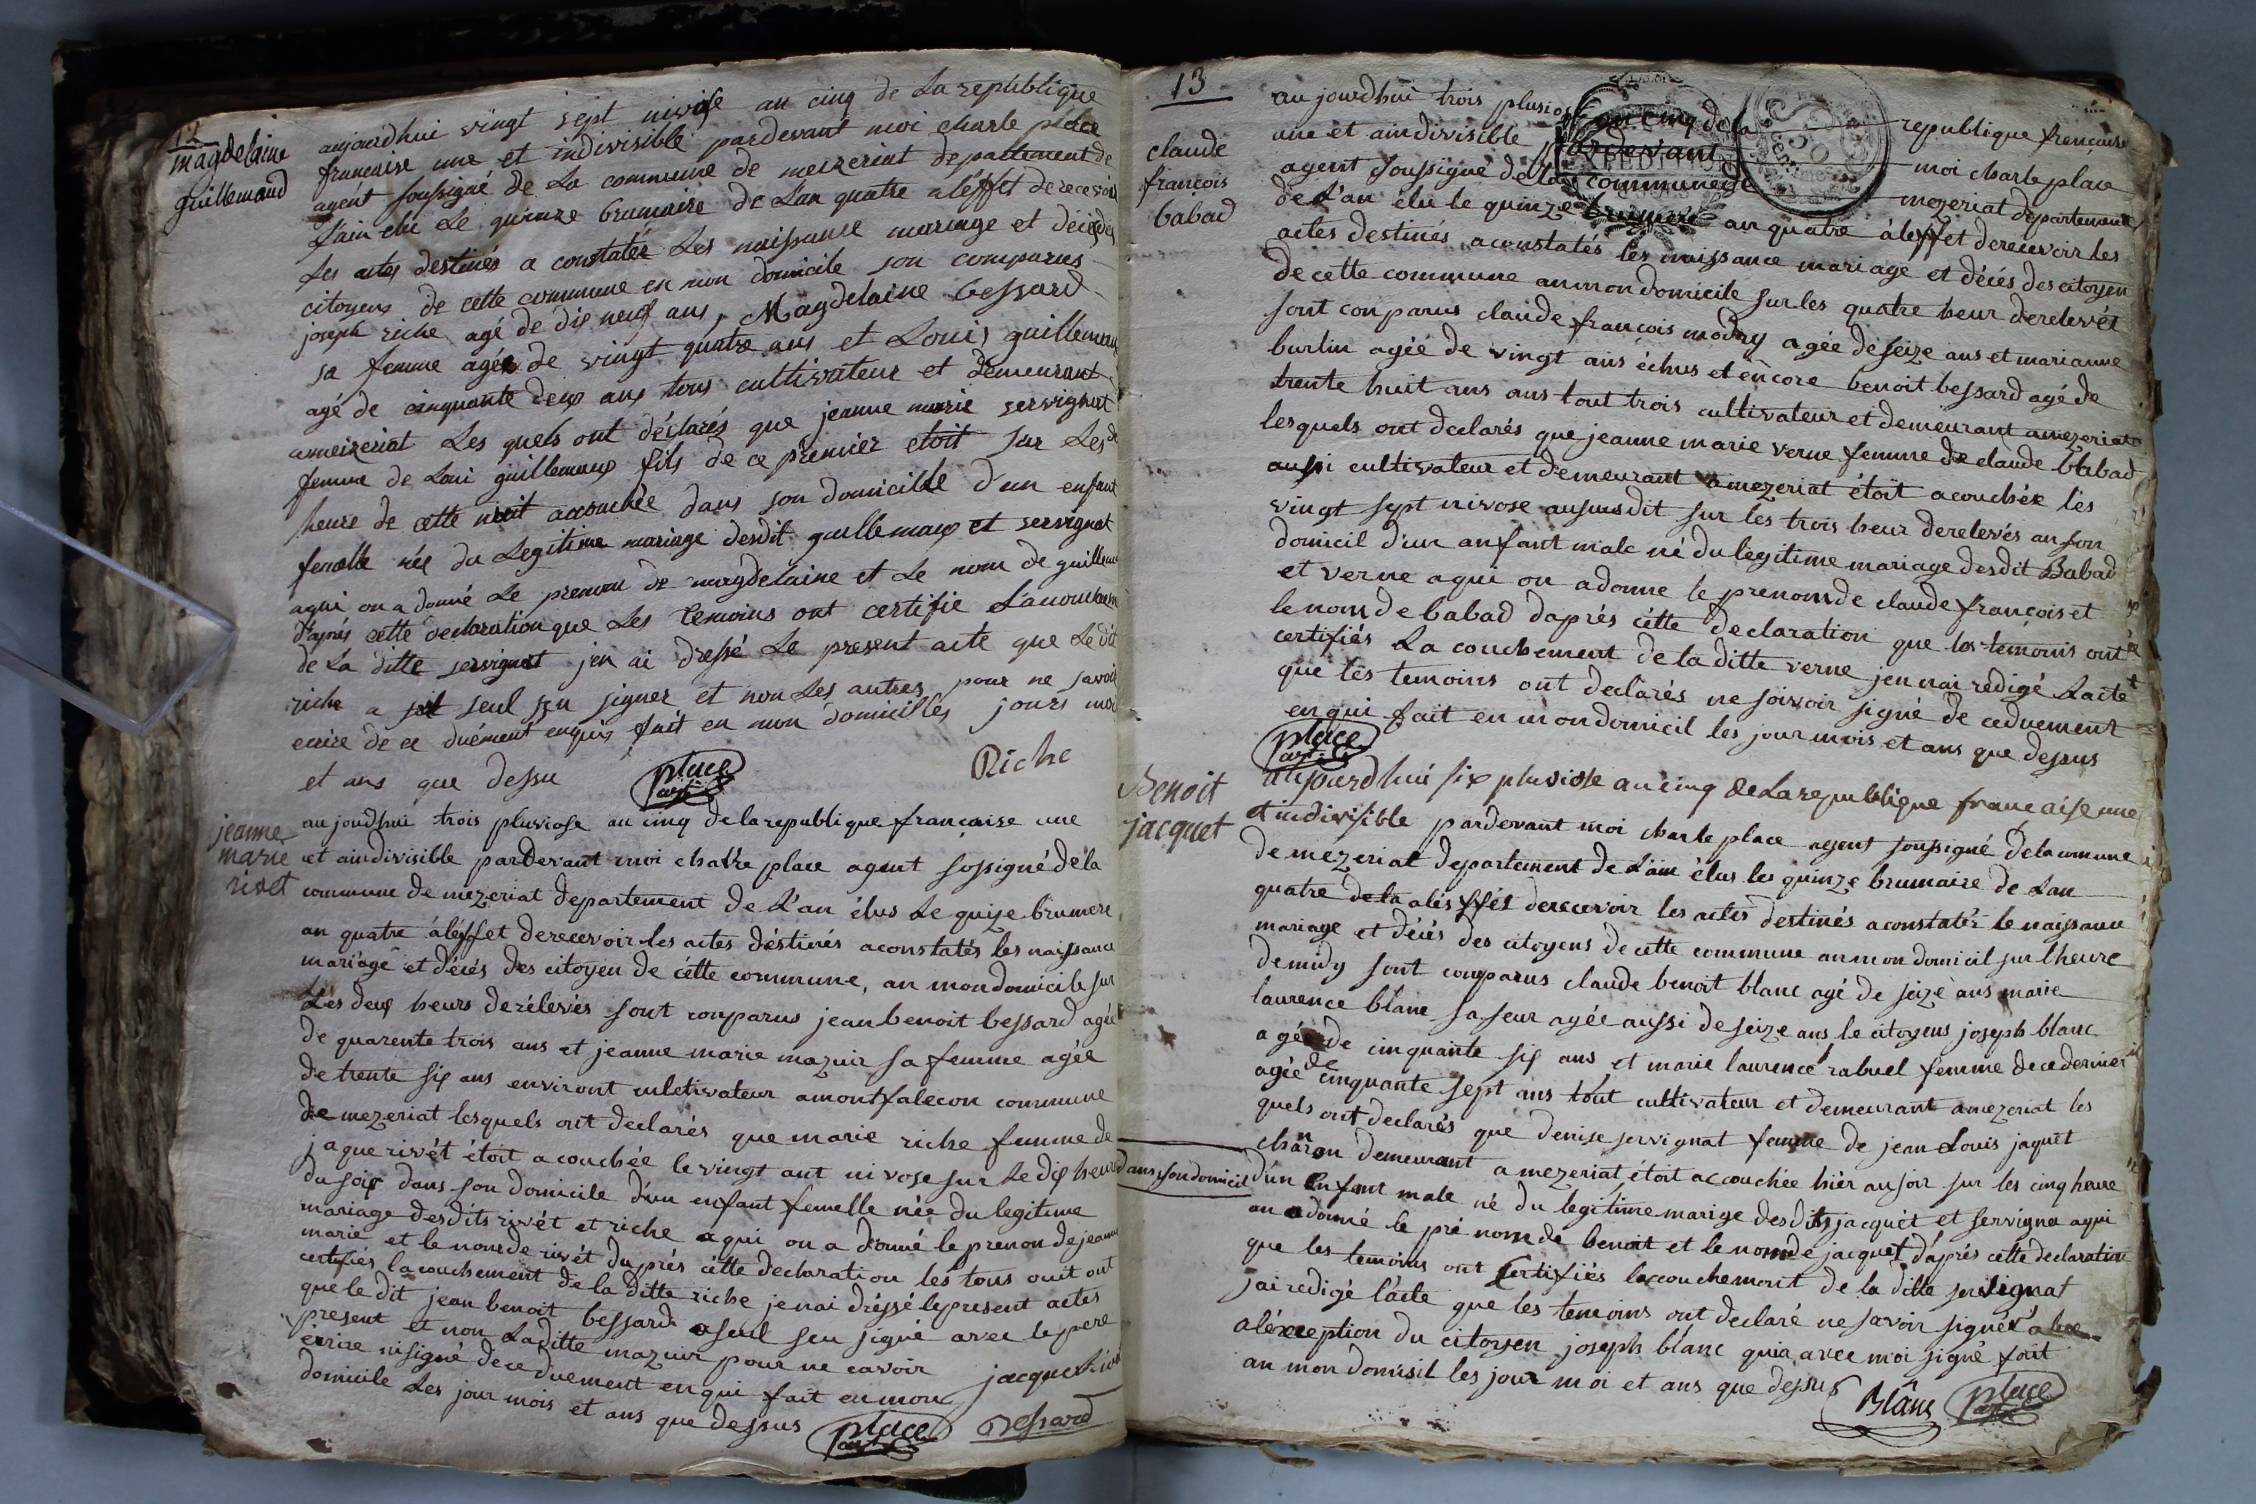 12
magdelaine
guillemaud
aujourdhui vingt sept nivose au cinq de La republique
francaise une et indivisible pardevant moi charle place
agent soussigné de La commune de meizeriat departement de
L'ain elu Le quinze brumaire de L'an quatre a l'éffet de recevoir
Les actes destinés a constatér Les naissance mariage et décés des
citoyens de cette commune en mon domicile son comparus
joseph riche agé de dix neuf ans, Magdelaine bessard
sa femme agée de vingt quatre ans et Louis guillemaux
agé de cinquante deux ans tous cultivateur et demeurant
ameizeriat Les quels ont déclarés que jeanne marie servignat
femme de Loui guillemaux fils de ce premier etoit sur Les dix
heure de cette nuit accouchée dans son domicille d'un enfant
femelle née du Legitime mariage desdit guillemaux et servignat
aqui on a donné Le prenom de magdelaine et Le nom de guillemaux
d'aprés cette declaration que Les temoins ont certifie L'acouchement
de La ditte servignat j'en ai dressé Le present acte que Le dit
riche a seul seu signer et non Les autres pour ne savoir
ecrire de ce duément enquis fait en mon domicilles jours mois
et ans que dessu
place
agt
Riche
jeanne
marie
rivet
aujourdhui trois pluviose au cinq de la republique francaise une
et aindivisible pardevant moi charle place agent sossigné de la
commune de mezeriat departement de L'an élus Le quize brumere
an quatre à l'éffet de recevoir les actes déstinés a constatés les naissance
mariage et décés des citoyen de cétte commune, an mon domicile sur
Les deux heurs de rélevés sont conparus jean benoit bessard agée
de quarente trois ans et jeanne marie mazuir sa femme agée
de trente six ans environt culetivateur a montfalecon commune
de mezeriat lesquels ont declarés que marie riche femme de
jaque rivét étoit acouchée le vingt ant nivose sur Le dix heure
du soir dans son domicile d'un enfant femelle née du legitime
mariage desdits rivét et riche aqui on a donné le prenon de jeanne
marie et le nom de rivét daprés cétte declaration les tous ont
certifiés lacouchement de la ditte riche jenai dréssé le present actes
que le dit jean benoit bessard a seul seu signé avec le pere
present et non La ditte mazuir pour ne cavoir
ecrire nisigné de ce duement en qui fait en mon
domicile Les jour mois et ans que dessus
jacque Rivét
place
agt
Bessard
13
claude
françois
babad
aujourdhui trois pluviose au cinq de la republique francaise
une et aindivisible pardevant moi charle place
agent soussigné de la commune de mezeriat departement
de L'an élu le quinze brumere an quatre à l'effet de recevoir les
actes destinés a constatés les naissance mariage et décés des citoyen
de cette commune an mon domicile sur les quatre heur de relevét
sont conparus claude françois modry agée de seize ans et marianne
burlin agéé de vingt ans échus et encore benoit bessard agé de
trente huit ans ans tout trois cultivateur et demeurant amezeriat
lesquels ont declarés que jeanne marie verne femme de claude babad
aussi cultivateur et demeurant a mezeriat étoit acouchée lés
vingt sept nivose aususdit sur les trois heur de relevés an son
domicil d'un anfant male né du legitime mariage desdit Babad
et verne aqui on adonne le prenom de claude françois et
le nom de babad daprés cétte declaration que les temoins ont
certifiés La couchement de la ditte verne jen nai redigé L'acte
que les temoins ont declarés ne soivoir signé de ceduement
en qui fait en mon domicil les jour mois et ans que dessus
place
agt
Benoit
jacquet
aujourdhui six pluviose au cinq de La republique française une
et indivisible pardevant moi charle place agent soussigné de la comune
de mezeriat departement de L'ain élus les quinze brumaire de L'an
quatre de la a lés ffét de recevoir les actes destinés a constatés le naissance
mariage et décés des citoyens de cette commune an mon domicil sur l'heure
de midy sont conparus claude benoit blanc agé de seize ans marie
laurence blanc sa seur agée aussi de seize ans le citoyens joseph blanc
agée de cinquante six ans et marie laurence rabuel femme de ce dernier
agée de cinquante sept ans tout cultivateur et demeurant amezeriat les
quels ont declarés que denise servignat femme de jean Louis jaquet
charon demeurant a mezeriat étoit accouchée hiér au soir sur les cinq heure
dans son domicil
d'un enfant male né du legitime marige desdits jacquét et servigna aqui
an adonné le pré nom de benoit et le nom de jacquet d'aprés cétte declaration
que les temoins ont certifiés laccouchement de la ditte servignat
jai redigé l'acte que les temoins ont declaré ne savoir signér
a léxception du citoyen joseph blanc quia avec moi signé fait
an mon domisil les jour moi et ans que dessus
Blanc
place
agt